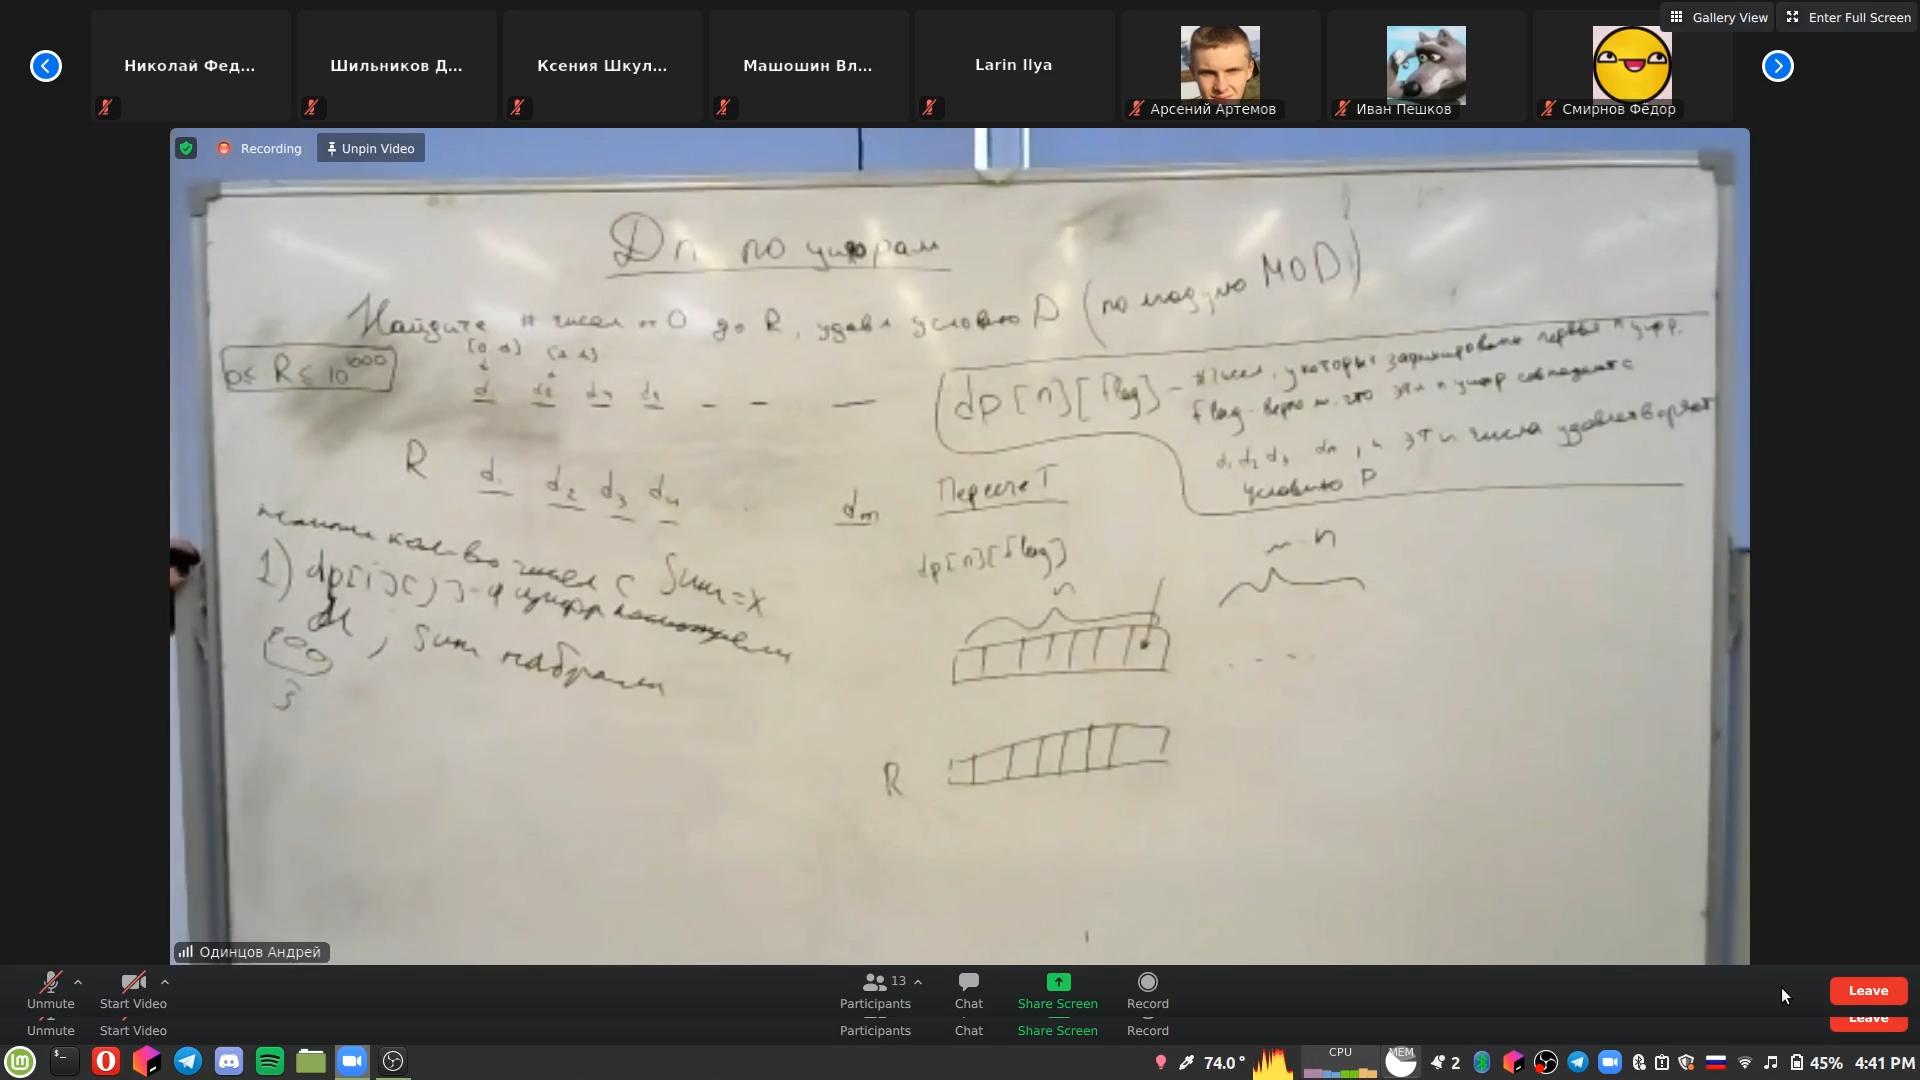 Gallery View
Enter Full Screen
Николай Фед...
Шильников Д...
Ксения Шкул...
Машошин Вл...
Larin Ilya
Арсений Артемов
Иван Пешков
Смирнов Фёдор
Recording
Unpin Video
Дп по цифрам
Найдите # чисел от 0 до R, удовл условию P (по модулю MOD)
0 ≤ R ≤ 10^1000
d1 d2 d3 d4
dp[n][flag] - # чисел, у которых зафиксированы первые n цифр.
flag - верно ли, что эти n цифр совпадают с
d1 d2 d3 dn, и эти числа удовлетворяют
условию P
R d1 d2 d3 d4 dm
Пересчет
кол-во чисел с Sum=x
dp[n][flag]
m-n
n
1) dp[i][j] - цифр посмотрели
, Sum набрали
R
Одинцов Андрей
Unmute
Start Video
13
Participants
Chat
Share Screen
Record
Leave
Unmute
Start Video
Participants
Chat
Share Screen
Record
Leave
74.0°
CPU
MEM
2
45%
4:41 PM